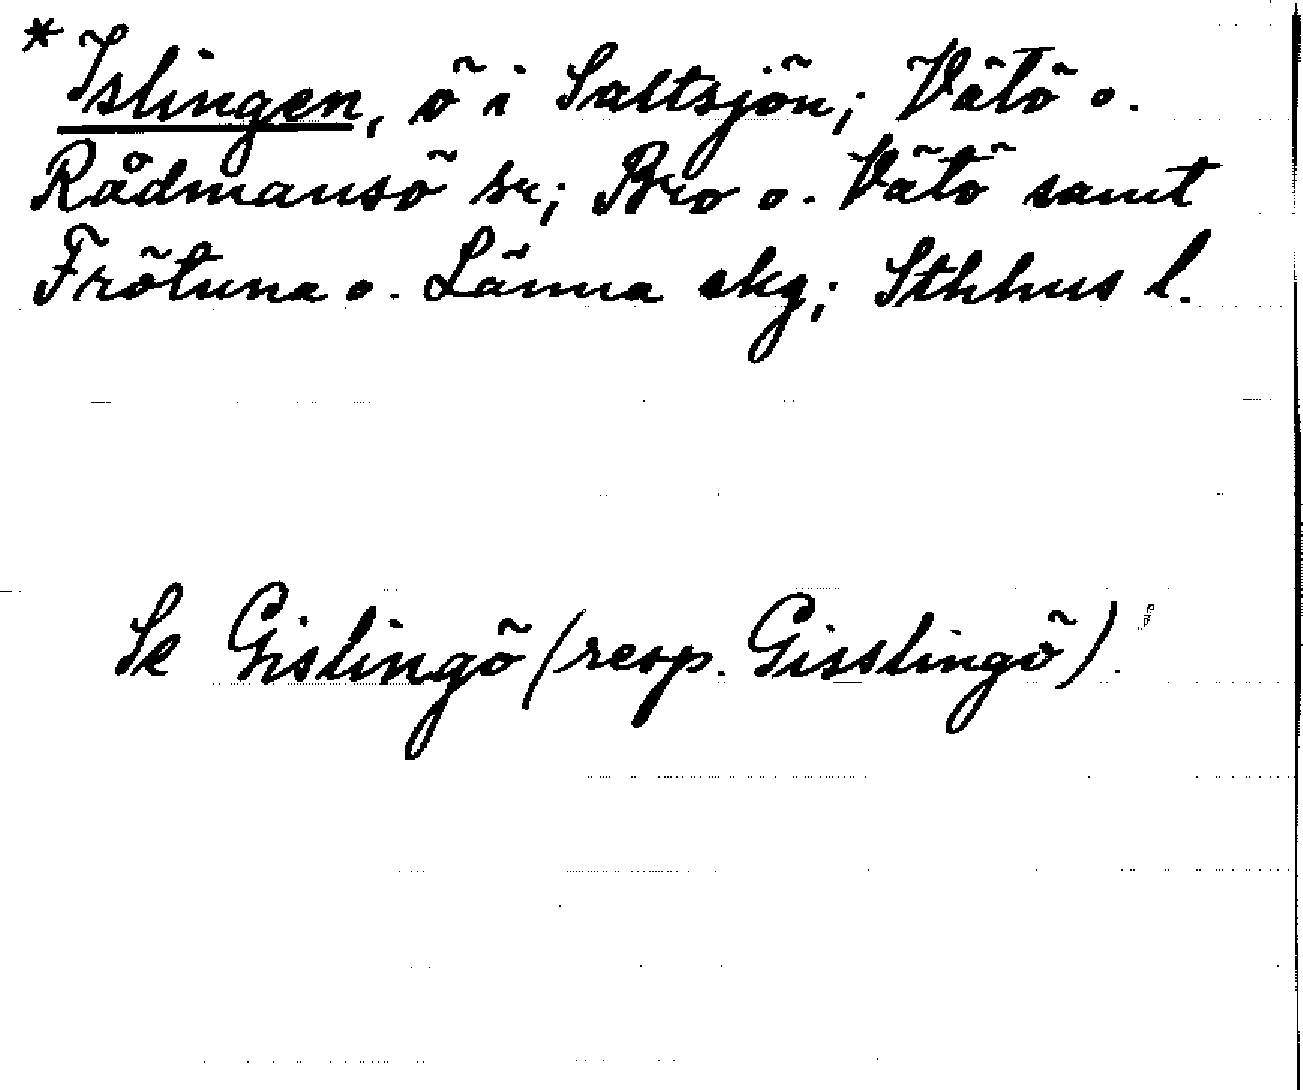 *Islingen, ö i Saltsjön; Vätö o.
Rådmansö sr; Bro o. Vätö samt
Frötuna o. Länna skg; Sthhus l.
Se Gislingö (resp. Gisslingö).